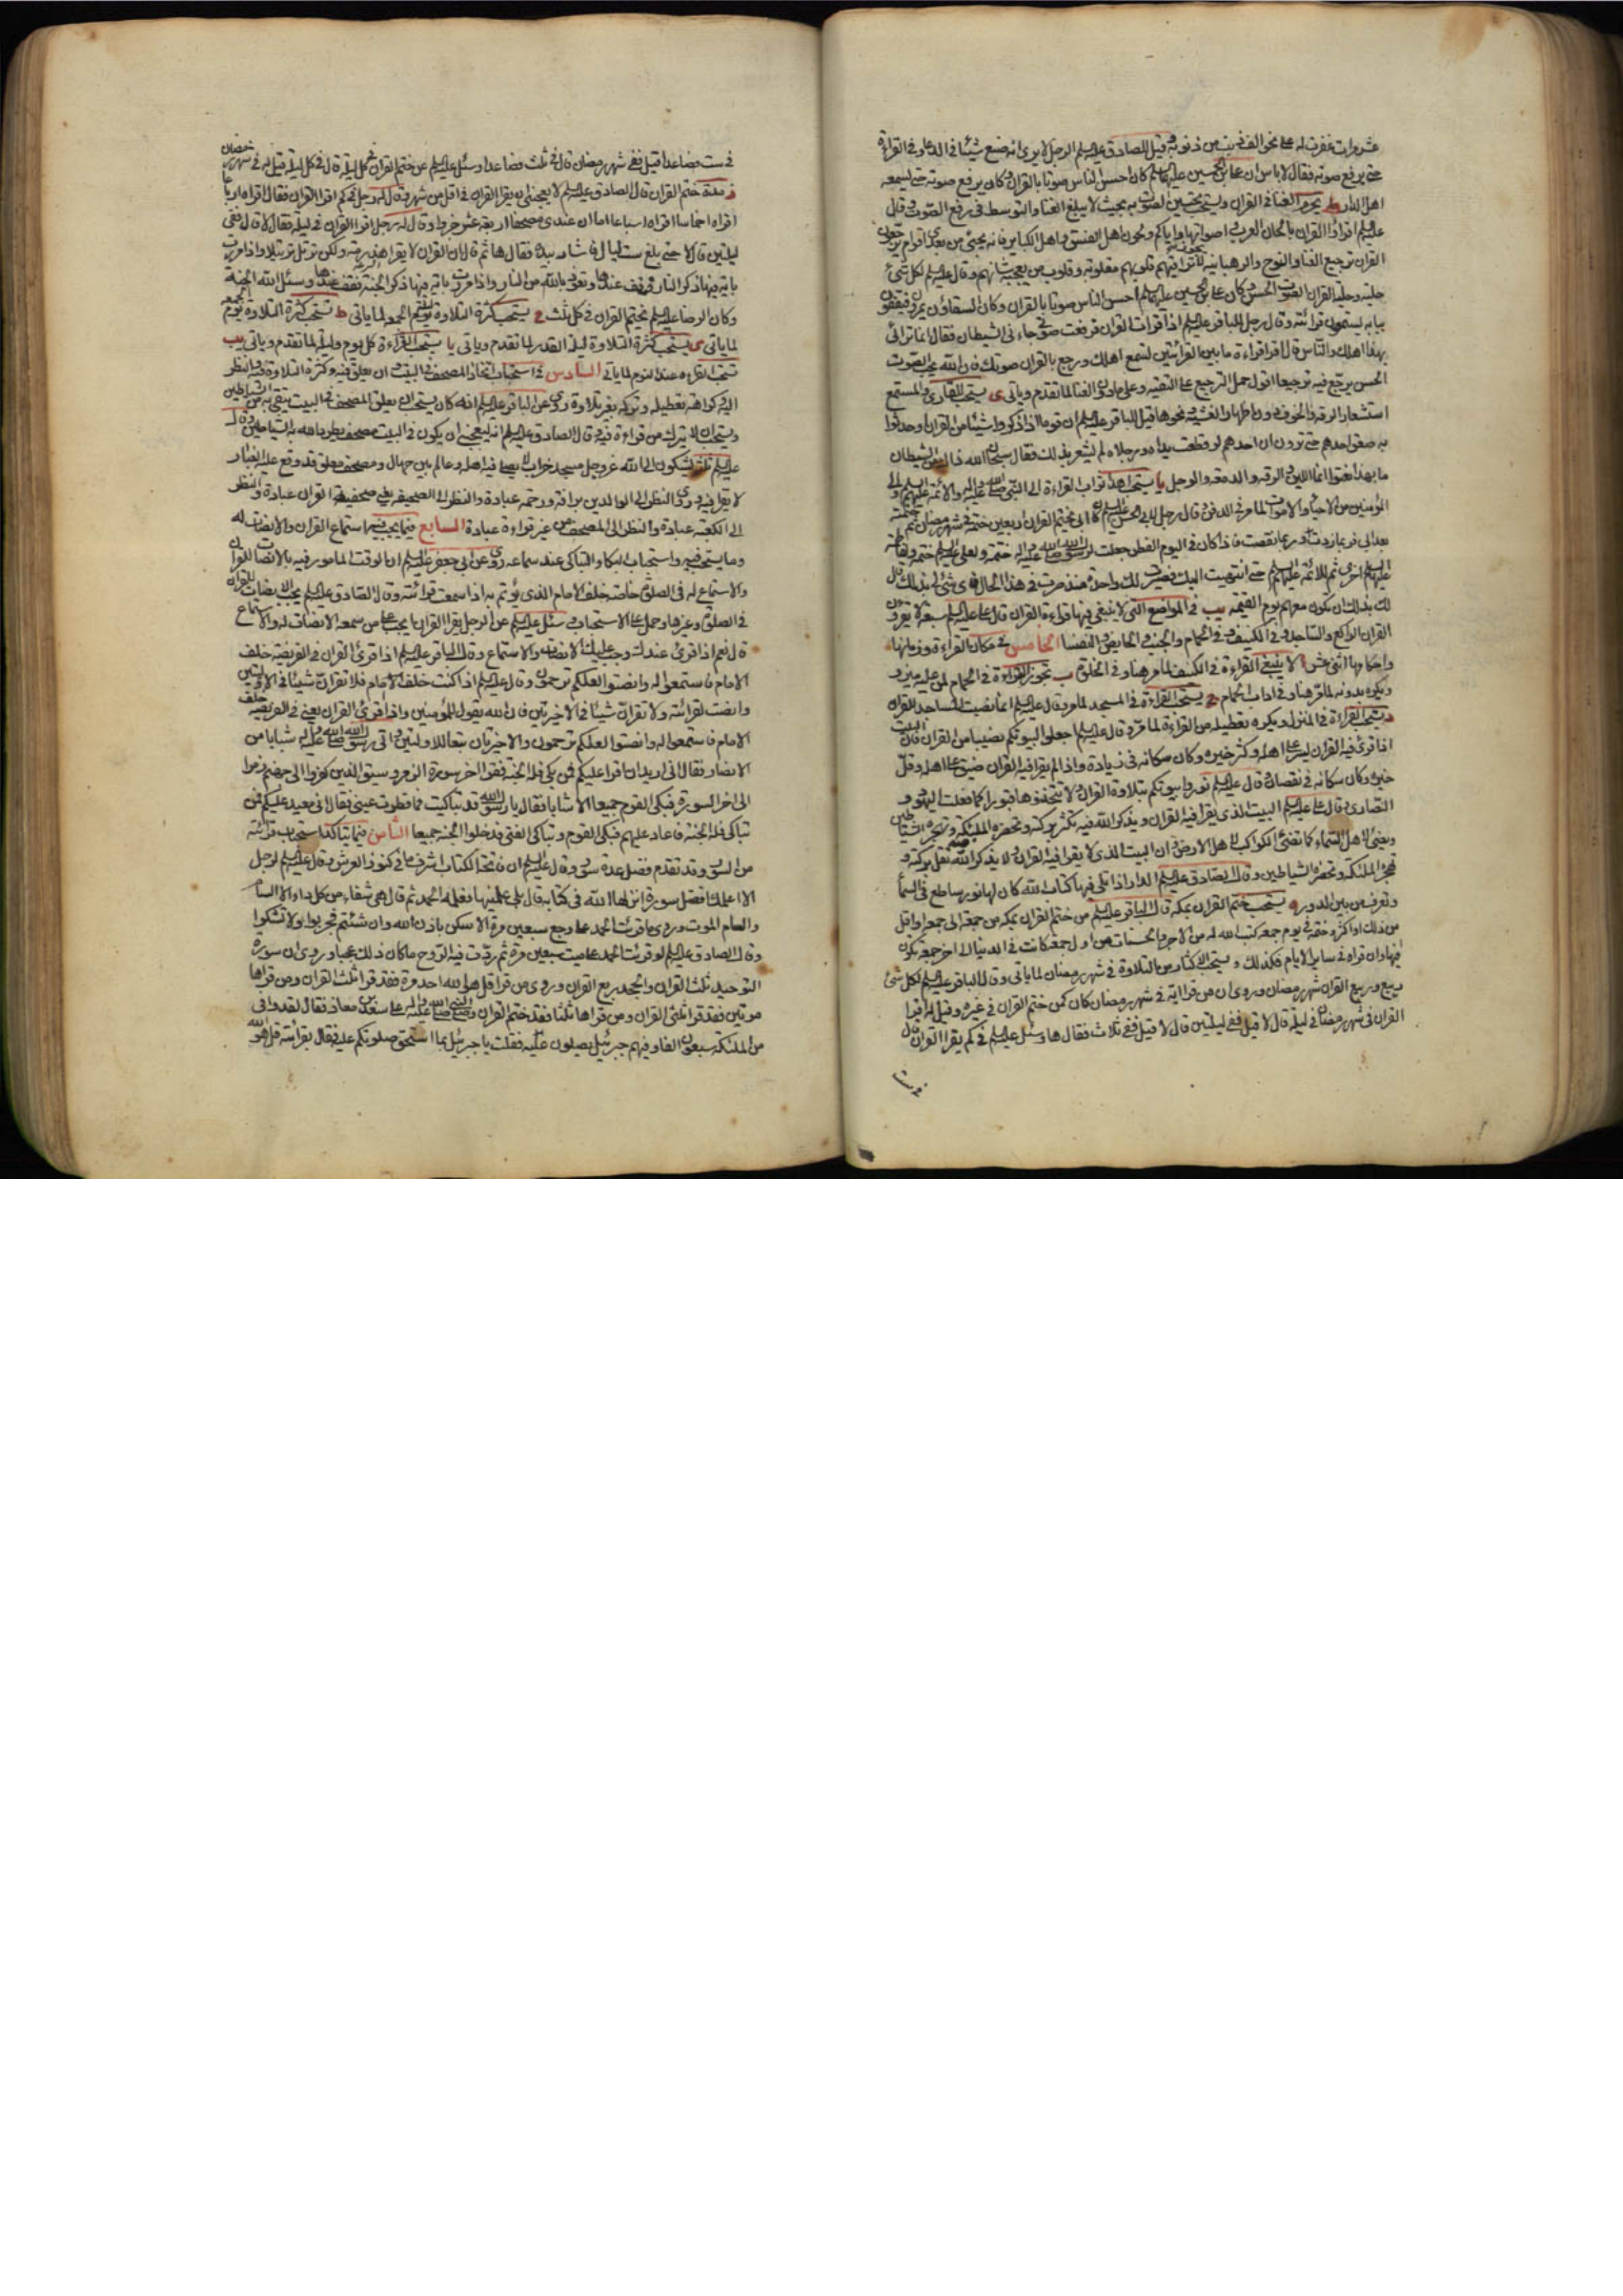 عشر مرات غفرت له على نحو الف في تسعين ذنوبه قيل للصادق عليه السلم الرجل لا يرى انه صنع شيئا في الدعاء وفي القراءة
حتى يرفع صوته فقال لا باس ان علي بن الحسين عليهما السلم كان احسن الناس صوتا بالقران وكان يرفع صوته حتى يسمعه
اهل الدار ط يحرم الغناء في القران ويستحب تحسين الصوت به بحيث لا يبلغ الغناء والتوسط في رفع الصوت وقال
عليه السلم اقرؤا القران بالحان العرب واصواتها واياكم ولحون اهل الفسق واهل الكباير فانه يجيئ من بعدي اقوام يرجعون
القران ترجيع الغناء والنوح والرهبانية لا يجوز تراقيهم قلوبهم مقلوبة وقلوب من يعجبه شانهم وقال عليه السلم لكل شئ
حلية وحلية القران الصوت الحسن وكان علي بن الحسين عليهما السلم احسن الناس صوتا بالقران وكان السقاؤن يمرون فيقفون
ببابه يستمعون قرائته وقال رجل للباقر عليه السلم اذا قرات القران فرفعت صوتي جاءني الشيطان فقال انما ترائي
بهذا اهلك والناس قال اقرا قراءة ما بين القرائتين تسمع اهلك ورجع بالقران صوتك فان الله يحب الصوت
الحسن يرجع فيه ترجيعا اقول حمل الترجيع على التقية وعلى ما دون الغناء لما تقدم وياتي ى يستحب للقاري والمستمع
استشعار الرقة والخوف دون اظهار الغشية ونحوها قيل للباقر عليه السلم ان قوما اذا ذكروا شيئا من القران او حدثوا
به صعق احدهم حتى ترون ان احدهم لو قطعت يداه ورجلاه لم يشعر بذلك فقال سبحان الله ذاك من الشيطان
ما بهذا نعتوا انما اللين والرقة والدمعة والوجل يا يستحب اهداء ثواب القراءة الى النبي صلى الله عليه واله والائمة عليهم السلم والى
المؤمنين من الاحياء والاموات لما مر في الدفن وقال رجل لابي الحسن عليه السلم كان ابي يختم القران اربعين ختمة في شهر رمضان ثم ختمته
بعد ابي فربما زدت وربما نقصت فاذا كان في اليوم الفطر جعلت لرسول الله صلى الله عليه واله ختمة ولعلي عليه السلم ختمة ولفاطمة
عليها السلم اخرى ثم للائمة عليهم السلم حتى انتهيت اليك فصيرت لك واحدة منذ صرت في هذا الحال فاي شئ لي بذلك قال
لك بذلك ان تكون معهم يوم القيمة يب في المواضع التي لا ينبغي فيها قراءة القران قال علي عليه السلم سبعة لا يقرؤن
القران الراكع والساجد وفي الكنيف وفي الحمام والجنب والحايض والنفساء الخامس في مكان القراءة وزمانها
واحكامها اثنى عشر ا لا ينبغي القراءة في الكنيف لما مر هنا وفي الخلوة ب تجوز القراءة في الحمام لمن عليه ميزر
ويكره بدونه لما مر هنا وفي اداب الحمام ج يستحب القراءة في المسجد لما مر وقال عليه السلم انما نصبت المساجد للقران
د يستحب القراءة في المنزل ويكره تعطيله من القراءة لما مر وقال عليه السلم اجعلوا لبيوتكم نصيبا من القران فان البيت
اذا قرئ فيه القران يسر على اهله وكثر خيره وكان سكانه في زيادة واذا لم يقرا فيه القران ضيق على اهله وقل
خيره وكان سكانه في نقصان وقال عليه السلم نوروا بيوتكم بتلاوة القران ولا تتخذوها قبورا كما فعلت اليهود و
النصارى وقال علي عليه السلم البيت الذي يقرا فيه القران ويذكر الله فيه تكثر بركته وتحضره الملئكة وتهجره الشياطين
ويضئ لاهل السماء كما تضئ الكواكب لاهل الارض وان البيت الذي لا يقرا فيه القران ولا يذكر الله فيه تقل بركته و
تهجره الملئكة وتحضره الشياطين وقال الصادق عليه السلم الدار اذا تلي فيها كتاب الله كان لها نور ساطع في السماء
وتعرف من بين الدور ه يستحب ختم القران بمكة قال الباقر عليه السلم من ختم القران بمكة من جمعة الى جمعة واقل
من ذلك او اكثر وختمه في يوم جمعة كتب الله له من الاجر والحسنات من اول جمعة كانت في الدنيا الى اخر جمعة تكون
فيها وان قراه في ساير الايام فكذلك و يستحب الاكثار من التلاوة في شهر رمضان لما ياتي وقال الباقر عليه السلم لكل شئ
ربيع وربيع القران شهر رمضان وروي ان من قرا اية في شهر رمضان كان كمن ختم القران في غيره وقيل له اقرا
القران في شهر رمضان في ليلة قال لا قيل ففي ليلتين قال لا قيل ففي ثلاث فقال ها وسئل عليه السلم في كم يقرا القران قال
في ست
في ست فصاعدا قيل ففي شهر رمضان قال في ثلث فصاعدا وسئل عليه السلم عن ختم القران في كل ليلة قال في كل ليلة قيل له في شهر رمضان
ز مدة ختم القران قال الصادق عليه السلم لا يعجبني ان يقرا القران في اقل من شهر وقال له رجل في كم اقرا القران فقال اقراه ارباعا
اقراه اخماسا اقراه اسباعا اما ان عندي مصحفا اربعة عشر جزوا وقال له رجل اقرا القران في ليلة فقال لا قال ففي
ليلتين قال لا حتى بلغ ست ليال فاشار بيده فقال ها ثم قال ان القران لا يقرا هذرمة ولكن ترتل ترتيلا واذا مررت
باية فيها ذكر النار فقف عندها وتعوذ بالله من النار واذا مررت باية فيها ذكر الجنة فقف عندها وسئل الله الجنة
وكان الرضا عليه السلم يختم القران في كل ثلث ح يستحب كثرة التلاوة ليلة الجمعة لما ياتي ط يستحب كثرة التلاوة يوم الجمعة
لما ياتي ى يستحب كثرة التلاوة ليلة القدر لما تقدم وياتي يا يستحب القراءة كل يوم وليلة لما تقدم وياتي يب
تستحب القراءة عند النوم لما ياتي السادس في استحباب اتخاذ المصحف في البيت وان يعلق فيه وكثرة التلاوة فيه والنظر
اليه وكراهة تعطيله وتركه بغير تلاوة روي عن الباقر عليه السلم انه كان يستحب ان يعلق المصحف في البيت يتقى به من الشياطين
ويستحب ان لا يترك من قراءة فيه وقال الصادق عليه السلم انه ليعجبني ان يكون في البيت مصحف يطرد الله به الشياطين وقال
عليه السلم ثلثة يشكون الى الله عز وجل مسجد خراب لا يصلي فيه اهله وعالم بين جهال ومصحف معلق قد وقع عليه الغبار
لا يقرا فيه وروي النظر الى الوالدين برافة ورحمة عبادة والنظر الى الصحيفة يعني صحيفة القران عبادة والنظر
الى الكعبة عبادة والنظر الى المصحف من غير قراءة عبادة السابع فيما يجب فيه استماع القران والانصات له
وما يستحب فيه واستحباب البكاء والتباكي عند سماعه روي عن ابي جعفر عليه السلم ان الوقت المامور فيه بالانصات للقران
والاستماع له في الصلوة خاصة خلف الامام الذي يؤتم به اذا سمعت قرائته وقال الصادق عليه السلم يجب الانصات للقران
في الصلوة وغيرها وحمل على الاستحباب وسئل عليه السلم عن الرجل يقرا القران ايجب على من سمعه الانصات له والاستماع
قال نعم اذا قرئ عندك وجب عليك الانصات والاستماع وقال الباقر عليه السلم اذا قرئ القران في الفريضة خلف
الامام فاستمعوا له وانصتوا لعلكم ترحمون وقال عليه السلم اذا كنت خلف الامام فلا تقران شيئا في الاوليين
وانصت لقرائته ولا تقران شيئا في الاخيرتين فان الله يقول للمؤمنين واذا قرئ القران يعني في الفريضة خلف
الامام فاستمعوا له وانصتوا لعلكم ترحمون والاخيرتان تبعا للاولتين واتى رسول الله صلى الله عليه واله شبابا من
الانصار فقال اني اريدان اقرا عليكم فمن بكى فله الجنة فقرا اخر سورة الزمر وسيق الذين كفروا الى جهنم زمرا
الى اخر السورة فبكى القوم جميعا الا شابا فقال يا رسول الله قد تباكيت فما قطرت عيني فقال اني معيد عليكم فمن
تباكى فله الجنة فاعاد عليهم فبكى القوم وتباكى الفتى فدخلوا الجنة جميعا الثامن فيما يتاكد استحباب قرائته
من السور وقد تقدم فضل عدة سور وقال عليه السلم ان فاتحة الكتاب اشرف ما في كنوز العرش وقال عليه السلم لرجل
الا اعلمك افضل سورة انزلها الله في كتابه قال بلى علمنيها فعلمه الحمد ثم قال هي شفاء من كل داء الا السام
والسام الموت وروي ما قرئت الحمد على وجع سبعين مرة الا سكن باذن الله وان شئتم فجربوا ولا تشكوا
وقال الصادق عليه السلم لو قرئت الحمد على ميت سبعين مرة ثم ردت فيه الروح ما كان ذلك عجبا وروي ان سورة
التوحيد ثلث القران والجحد ربع القران وروي من قرا قل هو الله احد مرة فقد قرا ثلث القران ومن قراها
مرتين فقد قرا ثلثي القران ومن قراها ثلثا فقد ختم القران وصلى النبي صلى الله عليه واله على سعد بن معاذ فقال لقد وافى
من الملئكة سبعون الفا وفيهم جبرئيل يصلون عليه فقلت يا جبرئيل بما استحق صلوتكم عليه فقال بقرائته قل هو الله